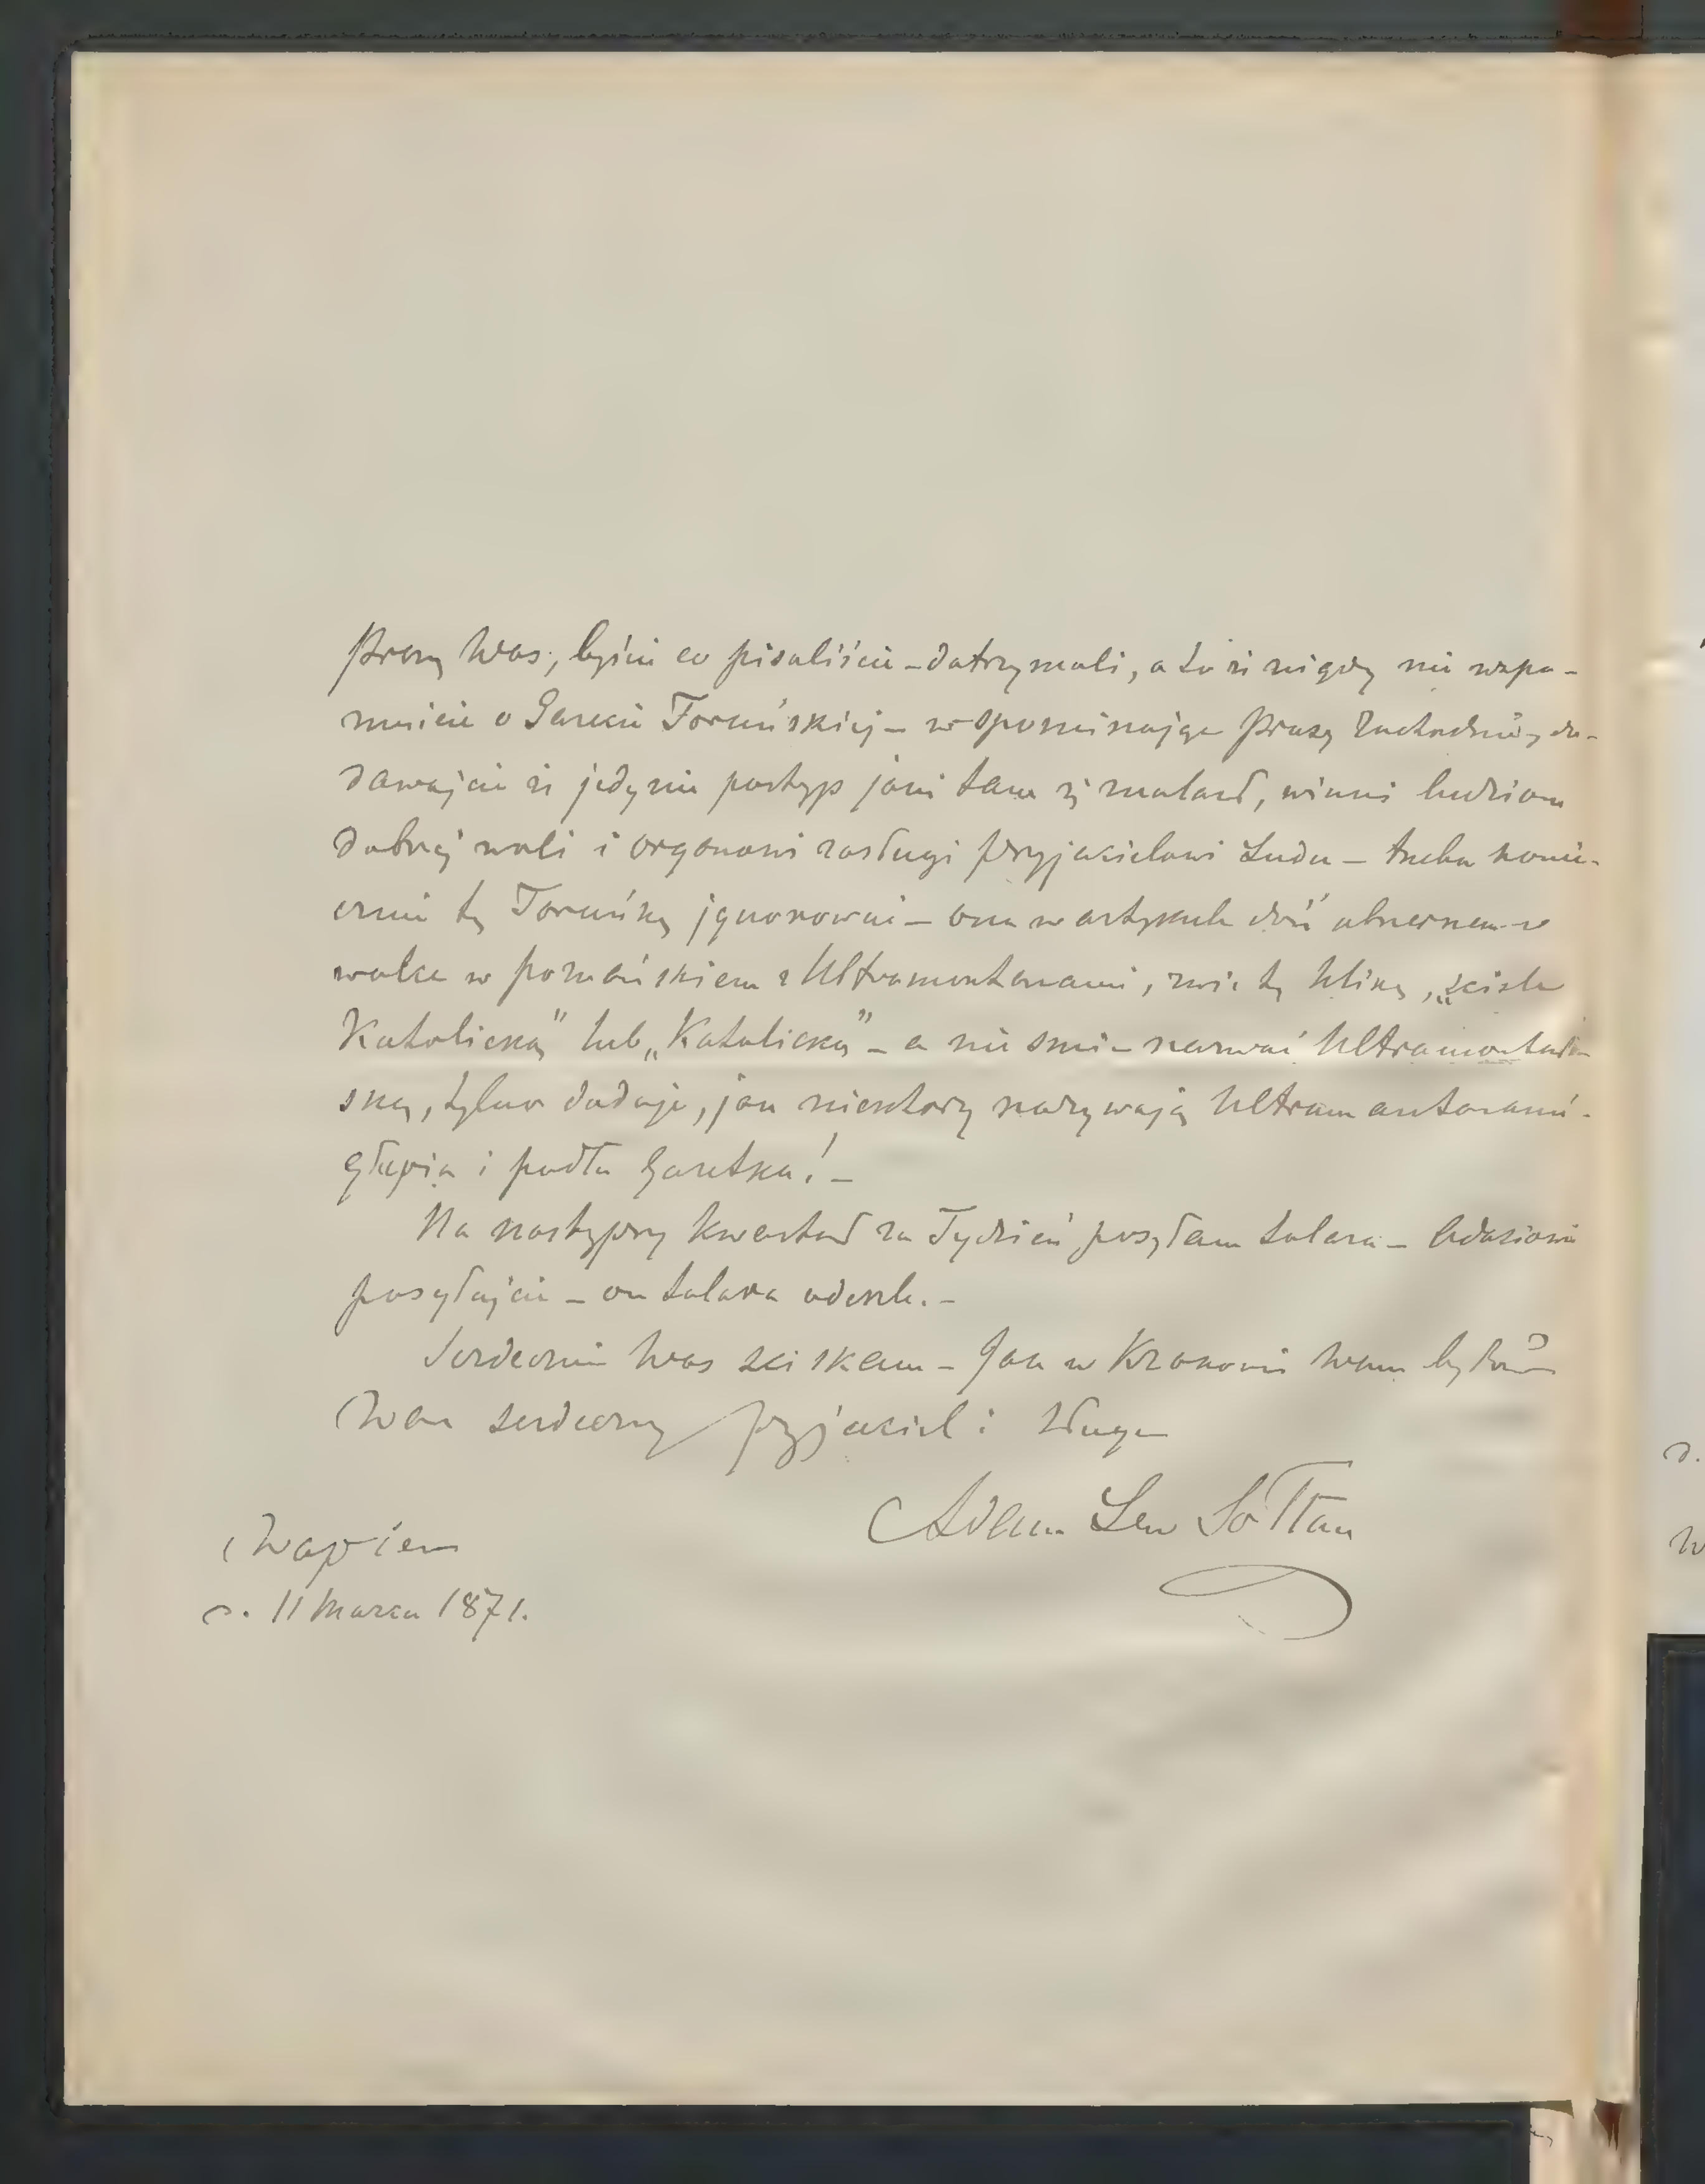 Proszę Was, byście co pisaliście – dotrzymali, a to że nigdy nie wspo-
mnicie o Gazecie Toruńskiej – wspominając Prusy Zachodnie, do-
dawajcie że jedynie postęp jaki tam się znalazł, winni ludziom
dobrej woli i organowi zasługi Przyjacielowi Ludu – trzeba koniecz-
cznie tę Toruńską ignorować – ona w artykule dość obszernem o
walce w poznańskiem z Ultramontanami, zwie tę klikę „ściśle
Katolicką" lub „Katolicką" – a nie śmie nazwać Ultramontań-
ską, tylko dodaje, jak niektórzy nazywają Ultramontanami –
głupia i podła Gazetka! –
Na następny kwartał za Tydzień posyłam talara – Adasiowi
posyłajcie – on talara odeszle. –
Serdecznie Was ściskam – Jak w Krakowie Wam było?
Wasz serdeczny przyjaciel i sługa
Adam Lew Sołtan
Wapien
d. 11 Marca 1871.